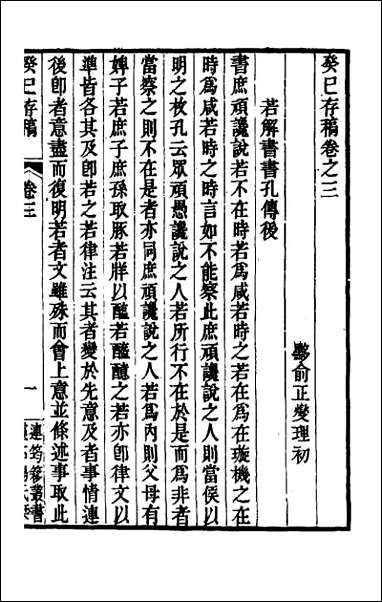 癸巳存稿卷之三
黟俞正燮理初
若解書書孔傳後
書庶頑讒說若不在時若爲咸若時之若在爲在璇機之在
時爲咸若時之時言如不能察此庶頑讒說之人則當侯以
明之枚孔云眾頑愚讒說之人若所行不在於是而爲非者
當察之則不在是者亦同庶頑讒說之人若爲內則父母有
婢子若庶子庶孫取豚若牂以醢若醯醷之若亦卽律文以
準皆各其及卽若之若律注云其者變於先意及者事情連
後卽者意盡而復明若者文雖殊而會上意並條述事取此
癸巳存稿
卷三
一
連筠簃叢書